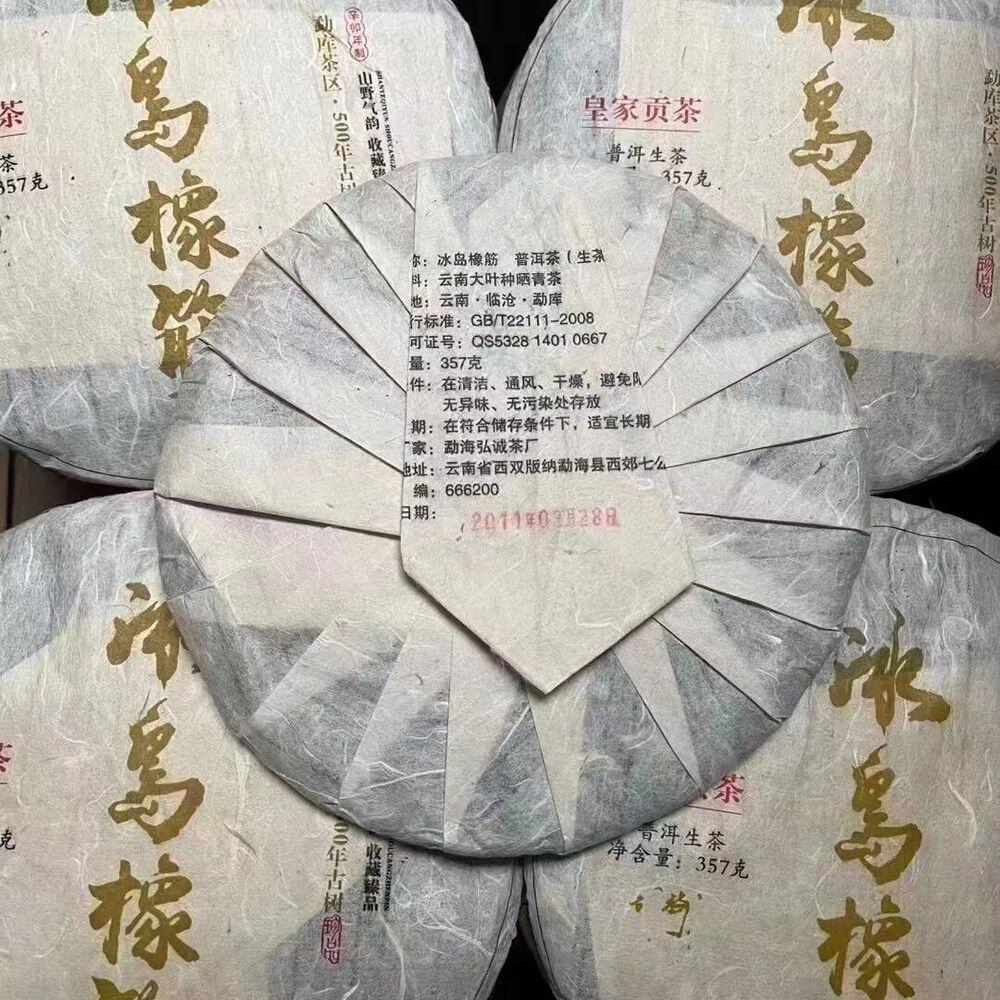 冰
岛
橡
筋
茶
茶
357克
辛卯年制
勐库茶区·500年古树
山野气韵 收藏臻
冰
岛
橡
皇家贡茶
普洱生茶
357克
勐库茶区·500年古树
珍品
称：冰岛橡筋 普洱茶（生茶
料：云南大叶种晒青茶
地：云南·临沧·勐库
行标准：GB/T22111-2008
可证号：QS5328 1401 0667
量：357克
件：在清洁、通风、干燥，避免阳
无异味、无污染处存放
期：在符合储存条件下，适宜长期
厂家：勐海弘诚茶厂
地址：云南省西双版纳勐海县西郊七公
编：666200
日期：2011年03月28日
冰
岛
橡
茶
克
00年古树
珍品
收藏臻品
冰
岛
橡
茶
普洱生茶
净含量：357克
古树